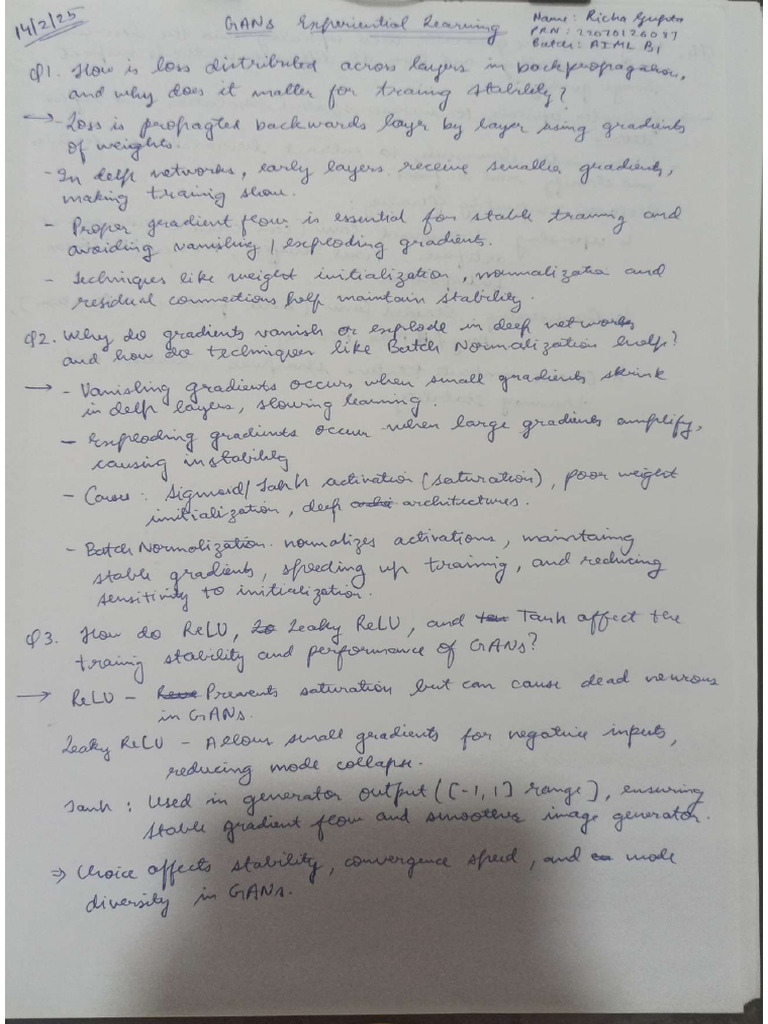 14/2/25
GANs Experiential Learning
Name: Richa Gupta
PRN: 22070126087
Batch: AIML B1
Q1. How is loss distributed across layers in backpropagation,
and why does it matter for training stability?
→ - Loss is propagted backwards layer by layer using gradients
of weights.
- In deep networks, early layers receive smaller gradients,
making training slow.
- Proper gradient flow is essential for stable training and
avoiding vanishing / exploding gradients.
- Techniques like weight initialization, normalization and
residual connections help maintain stability.
Q2. Why do gradients vanish or explode in deep networks
and how do techniques like Batch Normalization help?
→ - Vanishing gradients occurs when small gradients shrink
in deep layers, slowing learning.
- Exploding gradients occur when large gradients amplify,
causing instability
- Causes: Sigmoid/Tanh activation (saturation), poor weight
initialization, deep architectures.
- Batch Normalization normalizes activations, maintaining
stable gradients, speeding up training, and reducing
sensitivity to initialization.
Q3. How do ReLU, Leaky ReLU, and Tanh affect the
training stability and performance of GANs?
→ ReLU - Prevents saturation but can cause dead neurons
in GANs.
Leaky ReLU - Allows small gradients for negative inputs,
reducing mode collapse.
Tanh : Used in generator output ([-1,1] range], ensuring
stable gradient flow and smoother image generator.
⇒ Choice affects stability, convergence speed, and mode
diversity in GANs.